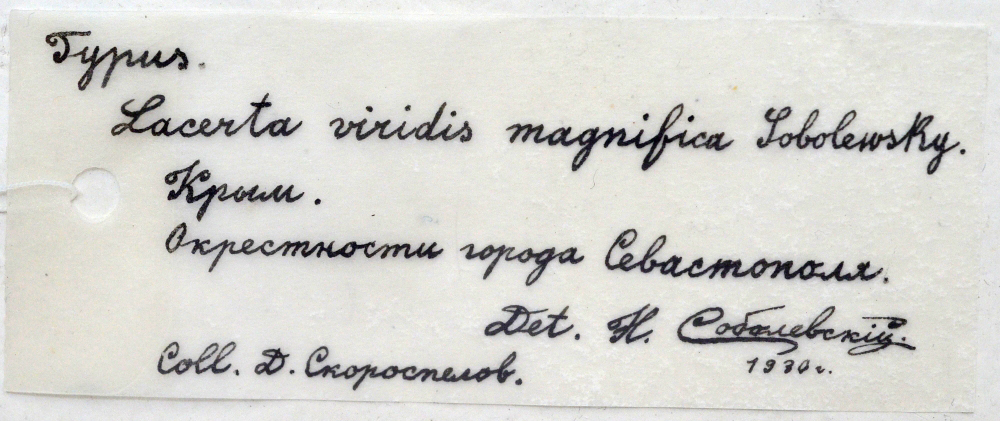 Typus.
Lacerta viridis magnifica Sobolewsky.
Крым.
Окрестности города Севастополя.
Det. Н. Соболевскій.
1930 г.
Coll. Д. Скороспелов.